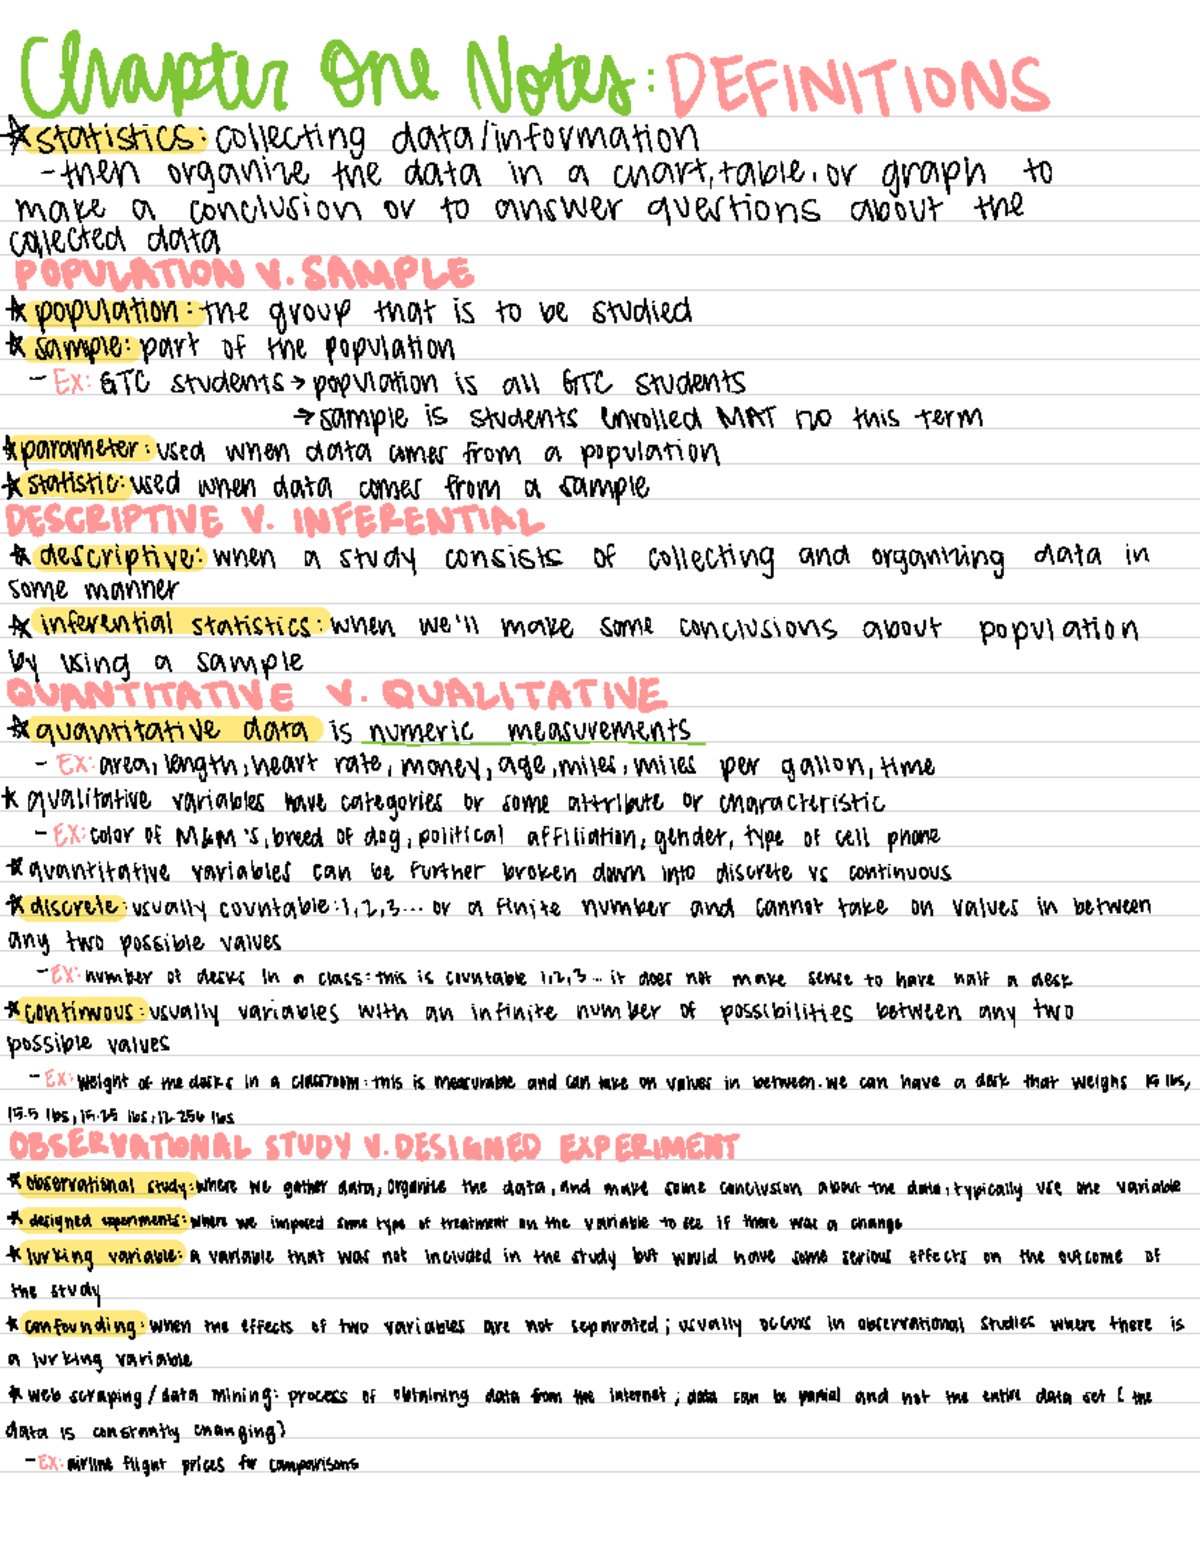 Chapter One Notes: DEFINITIONS
★statistics: collecting data/information
-then organize the data in a chart, table, or graph to
make a conclusion or to answer questions about the
collected data
POPULATION V. SAMPLE
★population: the group that is to be studied
★sample: part of the population
- Ex: GTC students → population is all GTC students
→ sample is students enrolled MAT 120 this term
★parameter: used when data comes from a population
★statistic: used when data comes from a sample
DESCRIPTIVE V. INFERENTIAL
★descriptive: when a study consists of collecting and organizing data in
some manner
★inferential statistics: when we'll make some conclusions about population
by using a sample
QUANTITATIVE V. QUALITATIVE
★quantitative data is numeric measurements
- Ex: area, length, heart rate, money, age, miles, miles per gallon, time
★qualitative variables have categories or some attribute or characteristic
- EX: color of M&M's, breed of dog, political affiliation, gender, type of cell phone
★quantitative variables can be further broken down into discrete vs continuous
★discrete: usually countable: 1, 2, 3... or a finite number and cannot take on values in between
any two possible values
- EX: number of desks in a class: this is countable 1, 2, 3... it does not make sense to have half a desk
★continuous: usually variables with an infinite number of possibilities between any two
possible values
- EX: weight of the desks in a classroom: this is measurable and can take on values in between. we can have a desk that weighs 15 lbs,
15.5 lbs, 15.25 lbs, 12.256 lbs
OBSERVATIONAL STUDY V. DESIGNED EXPERIMENT
★observational study: where we gather data, organize the data, and make some conclusion about the data; typically use one variable
★designed experiments: where we imposed some type of treatment on the variable to see if there was a change
★lurking variable: a variable that was not included in the study but would have some serious effects on the outcome of
the study
★confounding: when the effects of two variables are not separated; usually occurs in observational studies where there is
a lurking variable
★web scraping/data mining: process of obtaining data from the internet; data can be partial and not the entire data set (the
data is constantly changing)
- EX: airline flight prices for comparisons